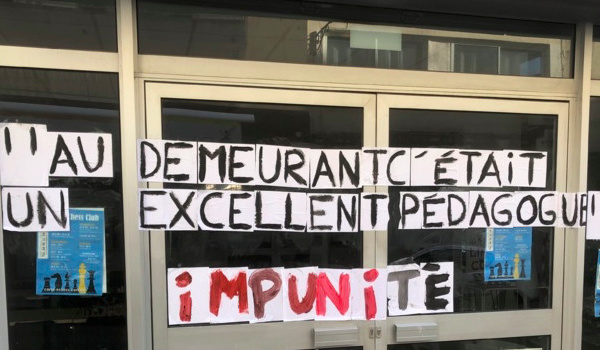 "AU DEMEURANT C'ÉTAIT
UN EXCELLENT PÉDAGOGUE"
iMPUNiTÉ
Chess Club